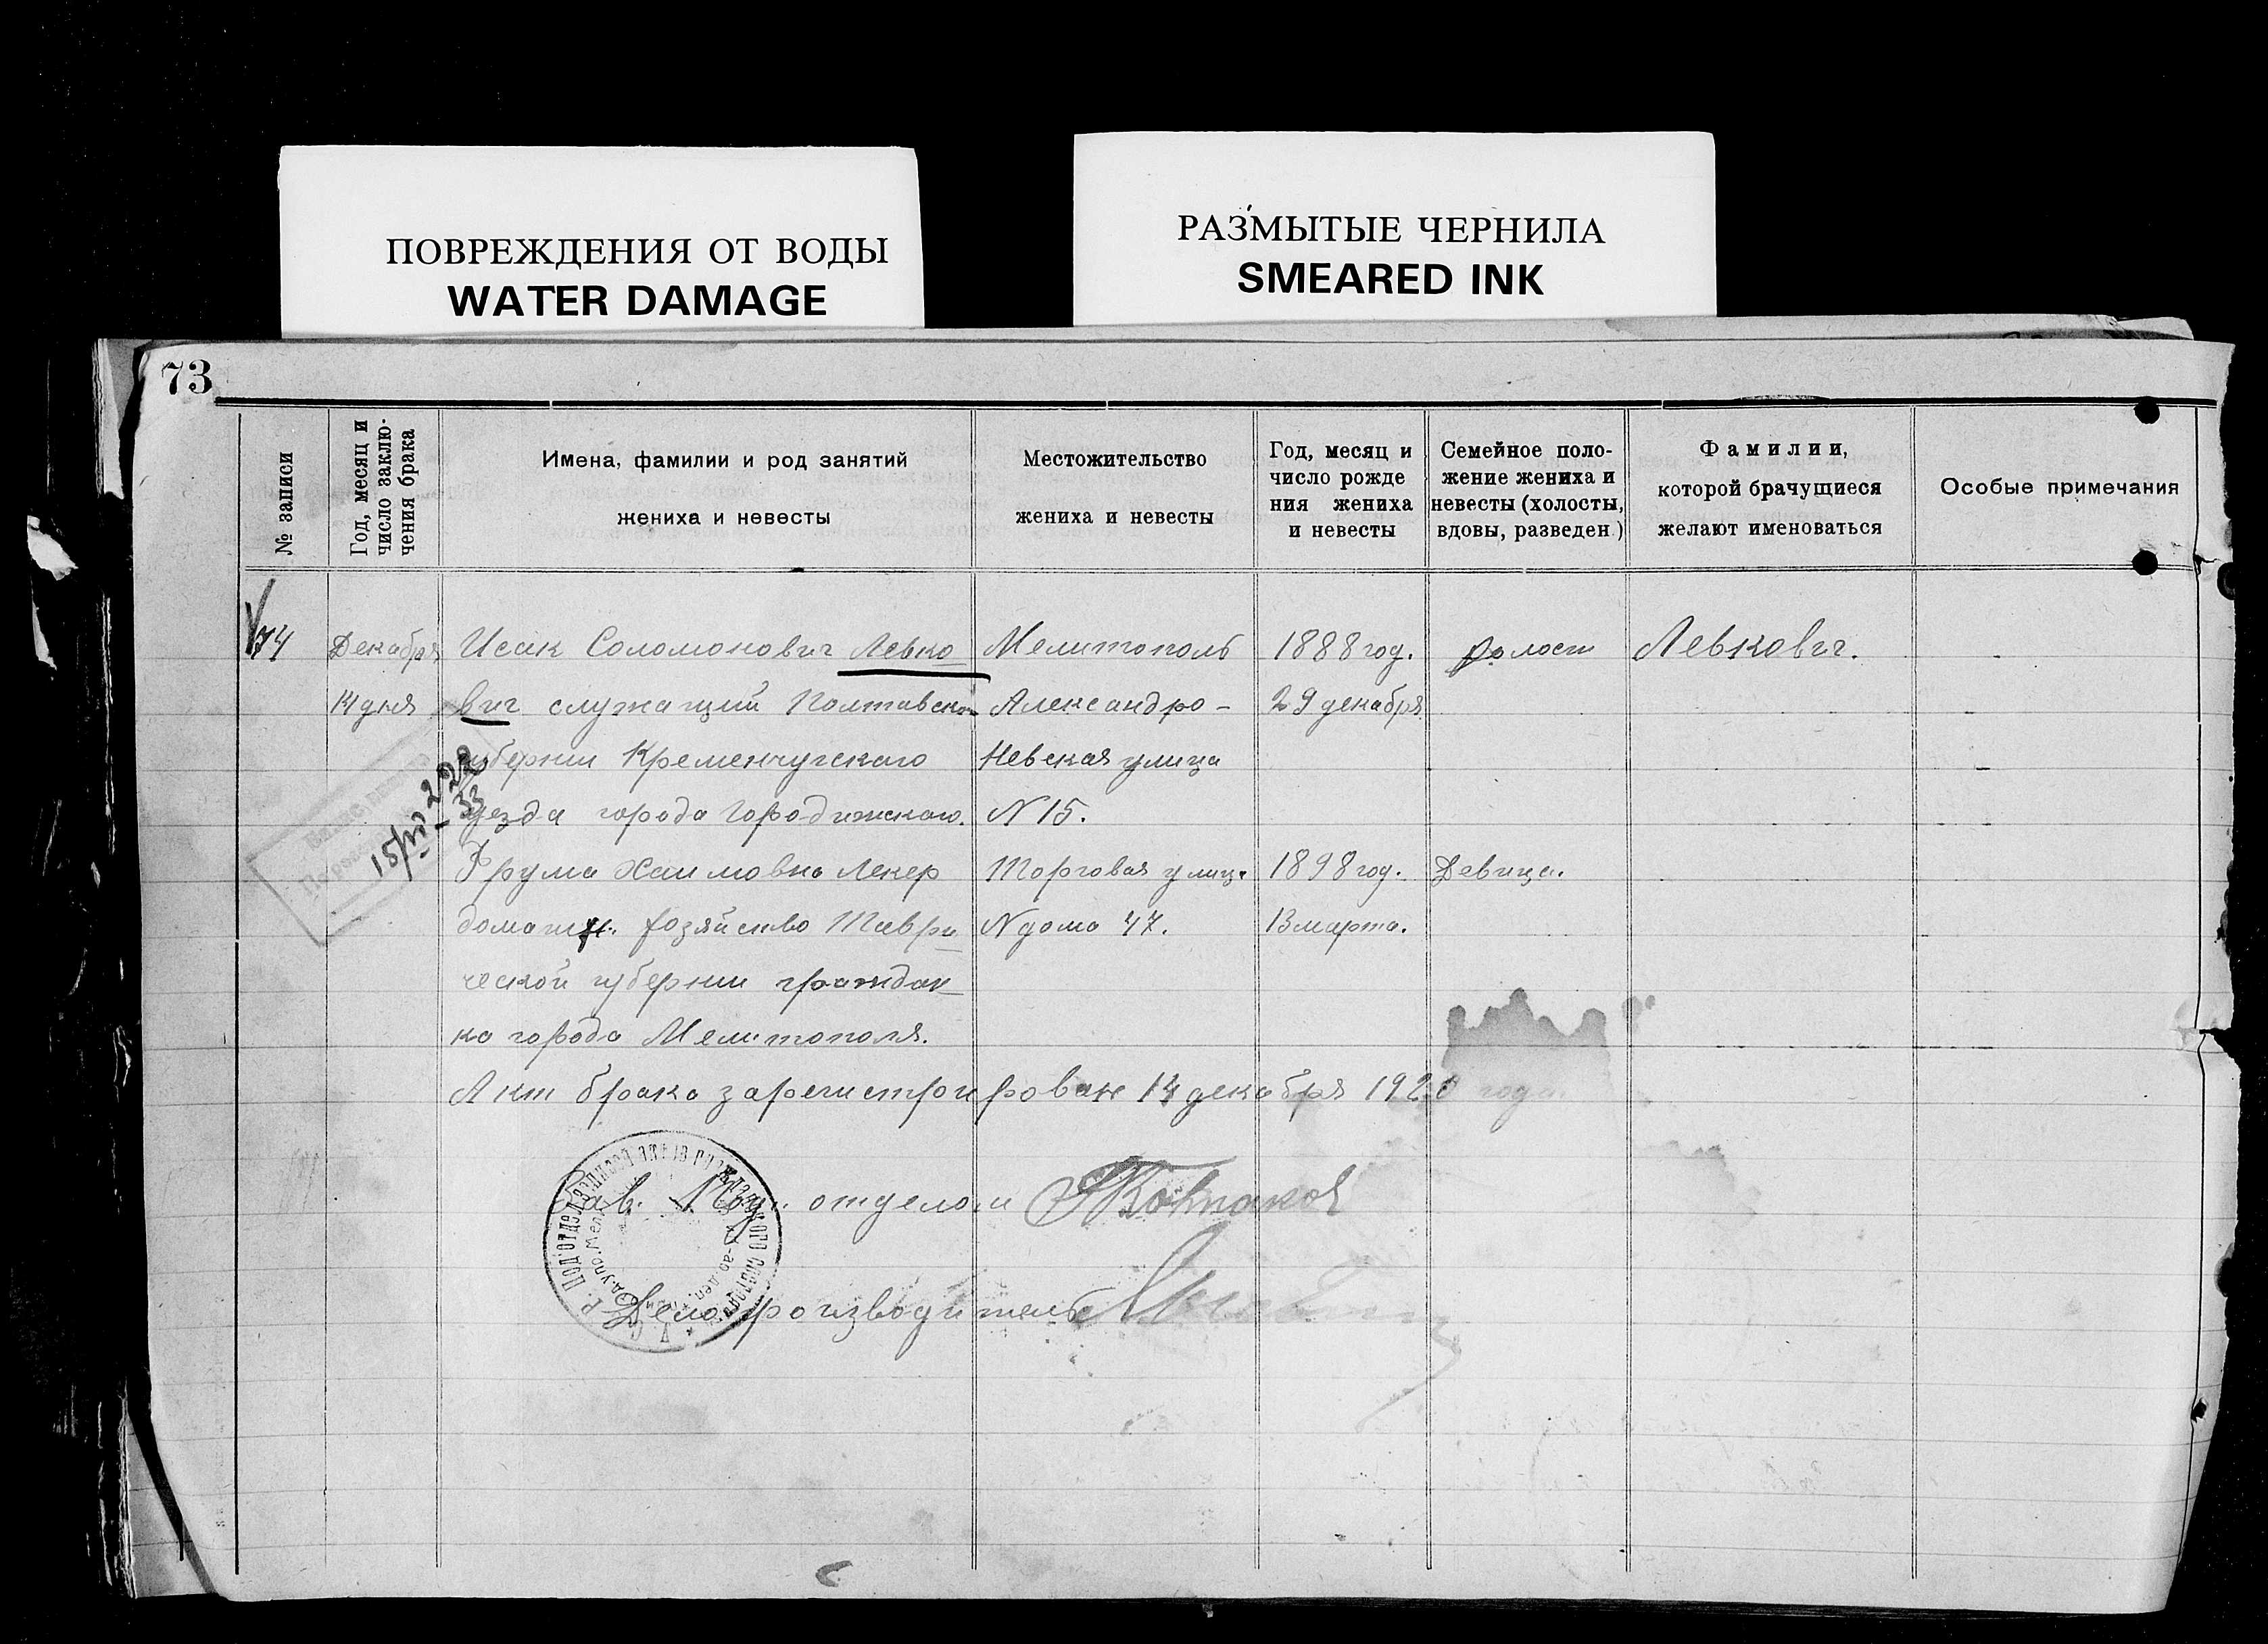 ПОВРЕЖДЕНИЯ ОТ ВОДЫ
WATER DAMAGE
РАЗМЫТЫЕ ЧЕРНИЛА
SMEARED INK
73
№ записи
Год, месяц и
число заклю-
чения брака
Имена, фамилии и род занятий
жениха и невесты
Местожительство
жениха и невесты
Год, месяц и
число рожде
ния жениха
и невесты
Семейное поло-
жение жениха и
невесты (холосты,
вдовы, разведен)
Фамилии,
которой брачущиеся
желают именоваться
Особые примечания
74
Декабря
14 дня
Исак Соломонович Левко
вич служащий Полтавской
губернии Кременчугского
уезда города Городижского.
Мелитополь
Александро-
Невская улица
N 15.
1888 год.
29 декабря
холост
Левкович.
15/VI 222
33
Фрума Хаимовна Лекер
домашн. хозяйство Таври
ческой губернии граждан
ка города Мелитополя.
Торговая улица
N дома 47.
1898 год.
13 марта.
Девица.
Акт брака зарегистрирован 14 декабря 1920 года.
Зав. Под. отделом
Делопроизводитель